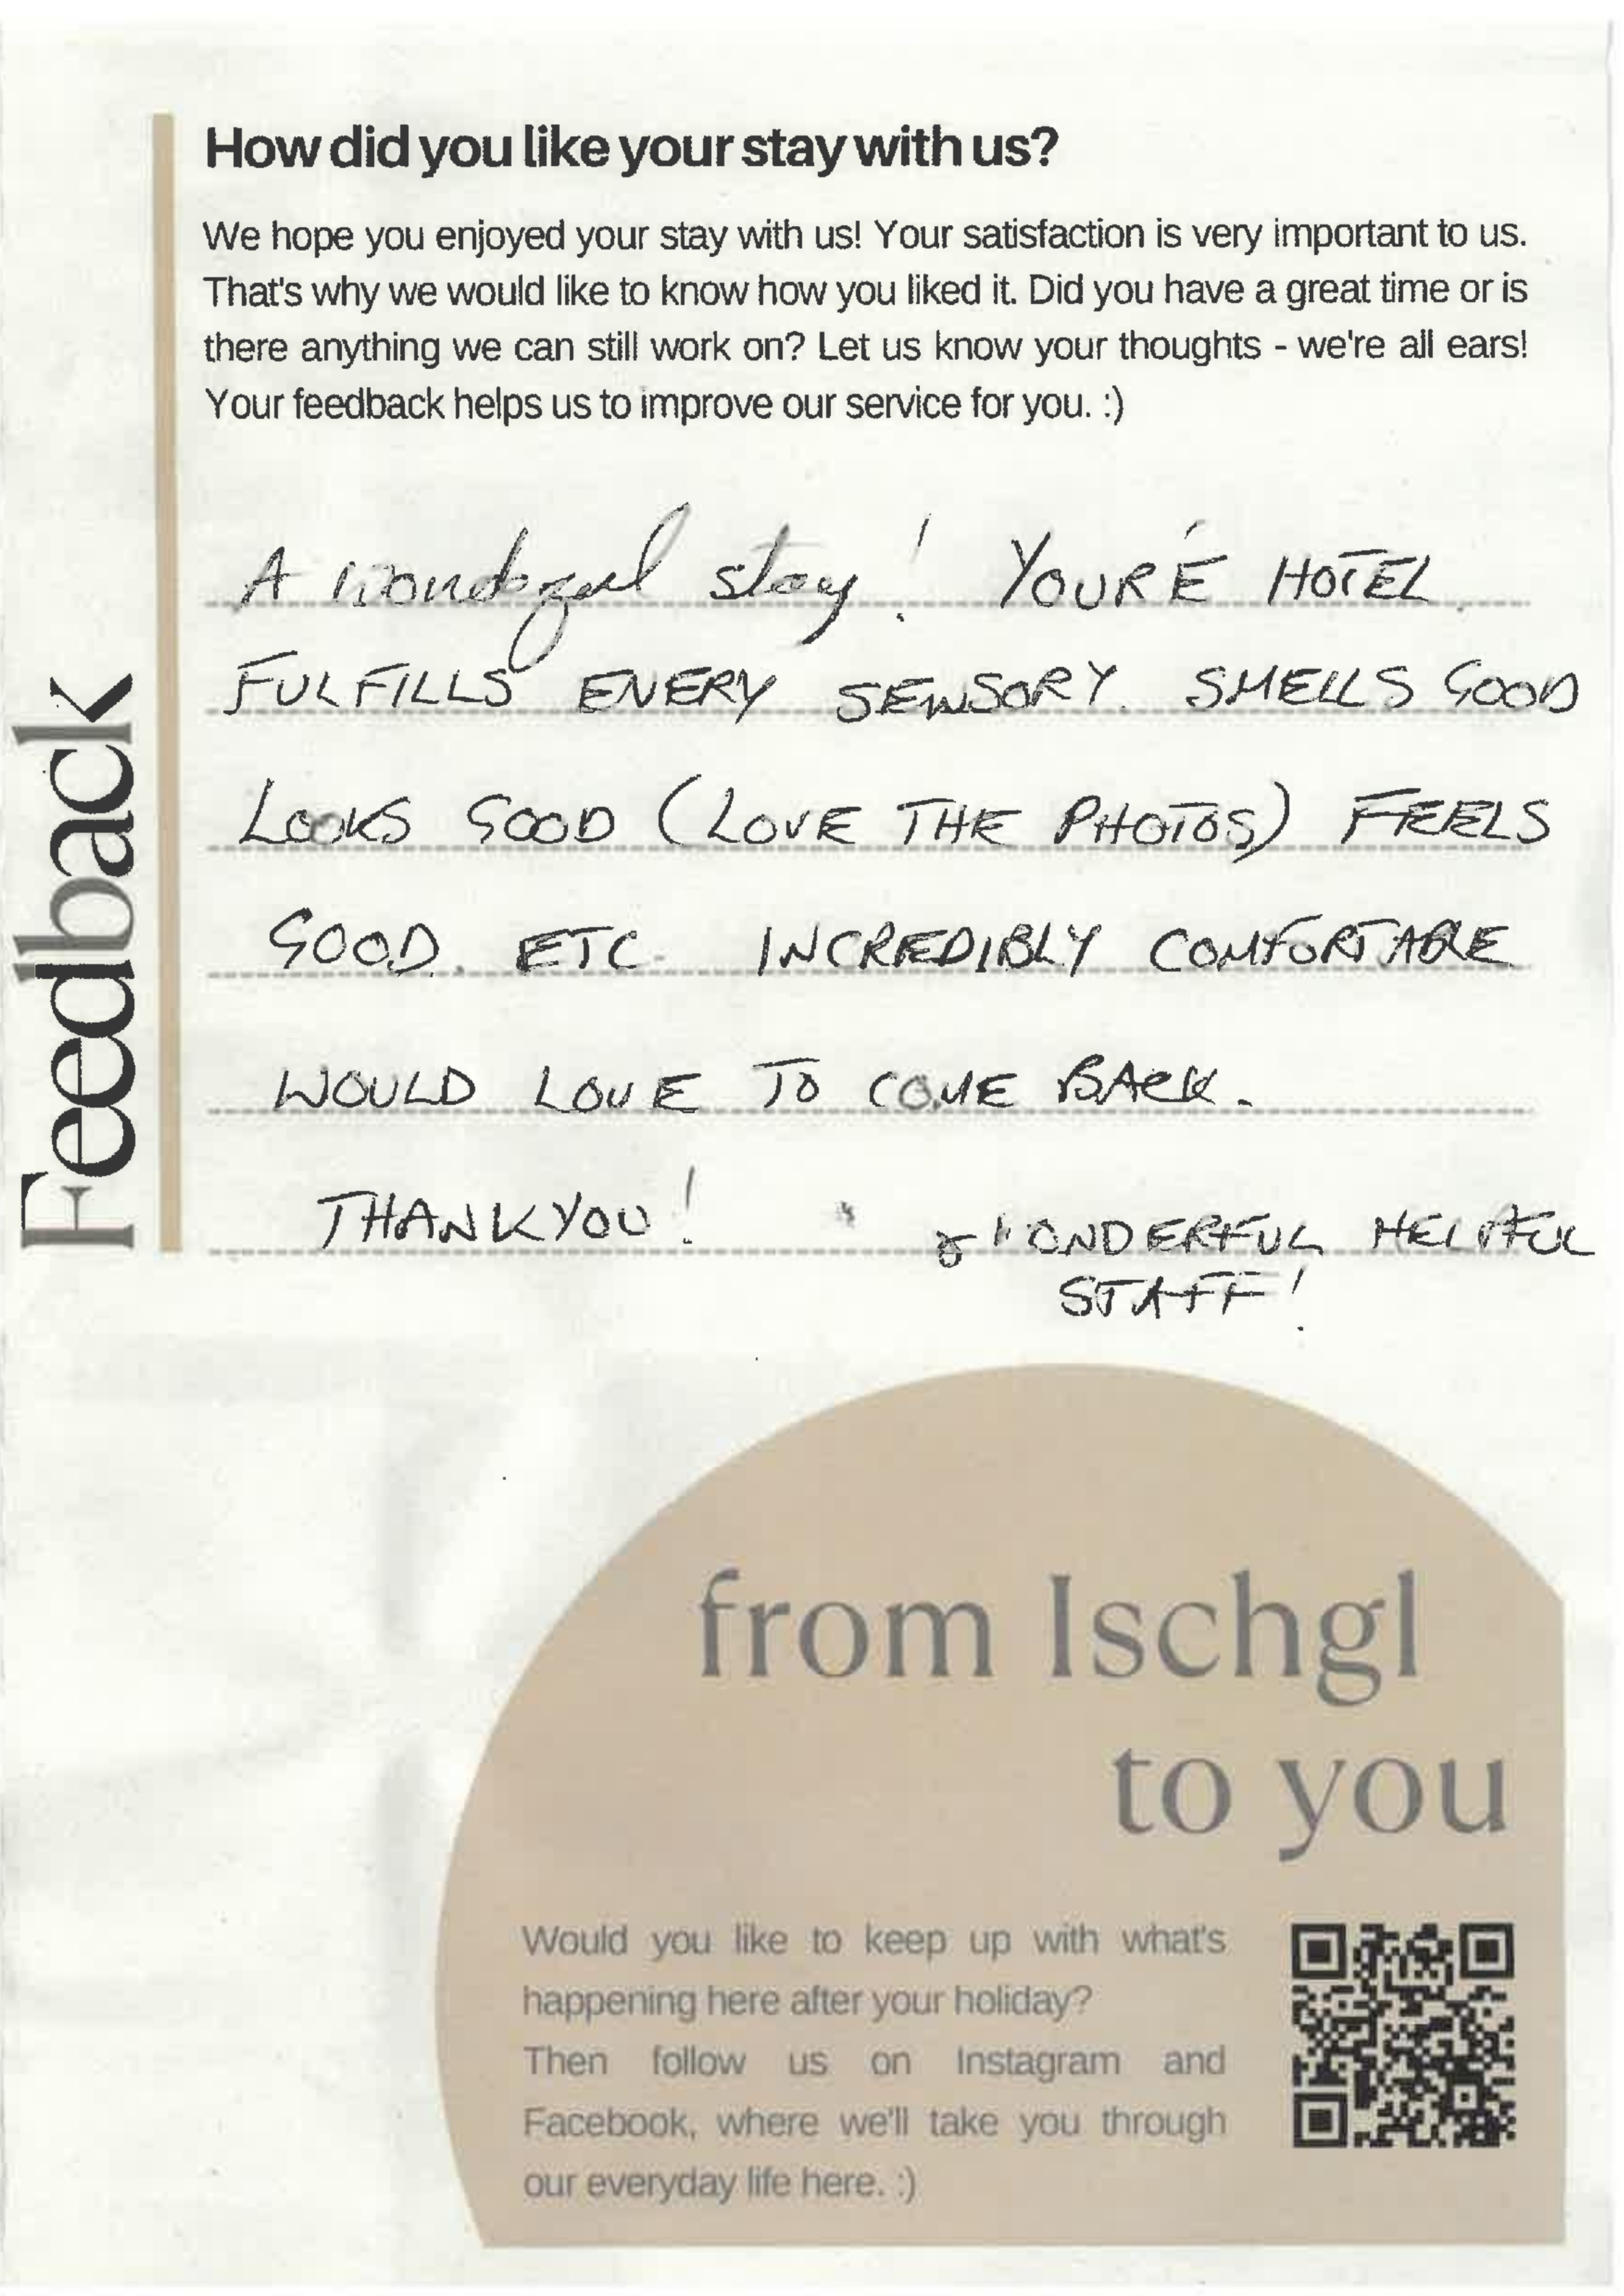 Feedback
How did you like your stay with us?
We hope you enjoyed your stay with us! Your satisfaction is very important to us.
That's why we would like to know how you liked it. Did you have a great time or is
there anything we can still work on? Let us know your thoughts - we're all ears!
Your feedback helps us to improve our service for you. :)
A wonderful stay! YOUR'E HOTEL
FULFILLS EVERY SENSORY. SMELLS GOOD
LOOKS GOOD (LOVE THE PHOTOS) FEELS
GOOD. ETC. INCREDIBLY COMFORTABLE
WOULD LOVE TO COME BACK.
THANK YOU!
& WONDERFUL HELPFUL
STAFF!
from Ischgl
to you
Would you like to keep up with what's
happening here after your holiday?
Then follow us on Instagram and
Facebook, where we'll take you through
our everyday life here. :)